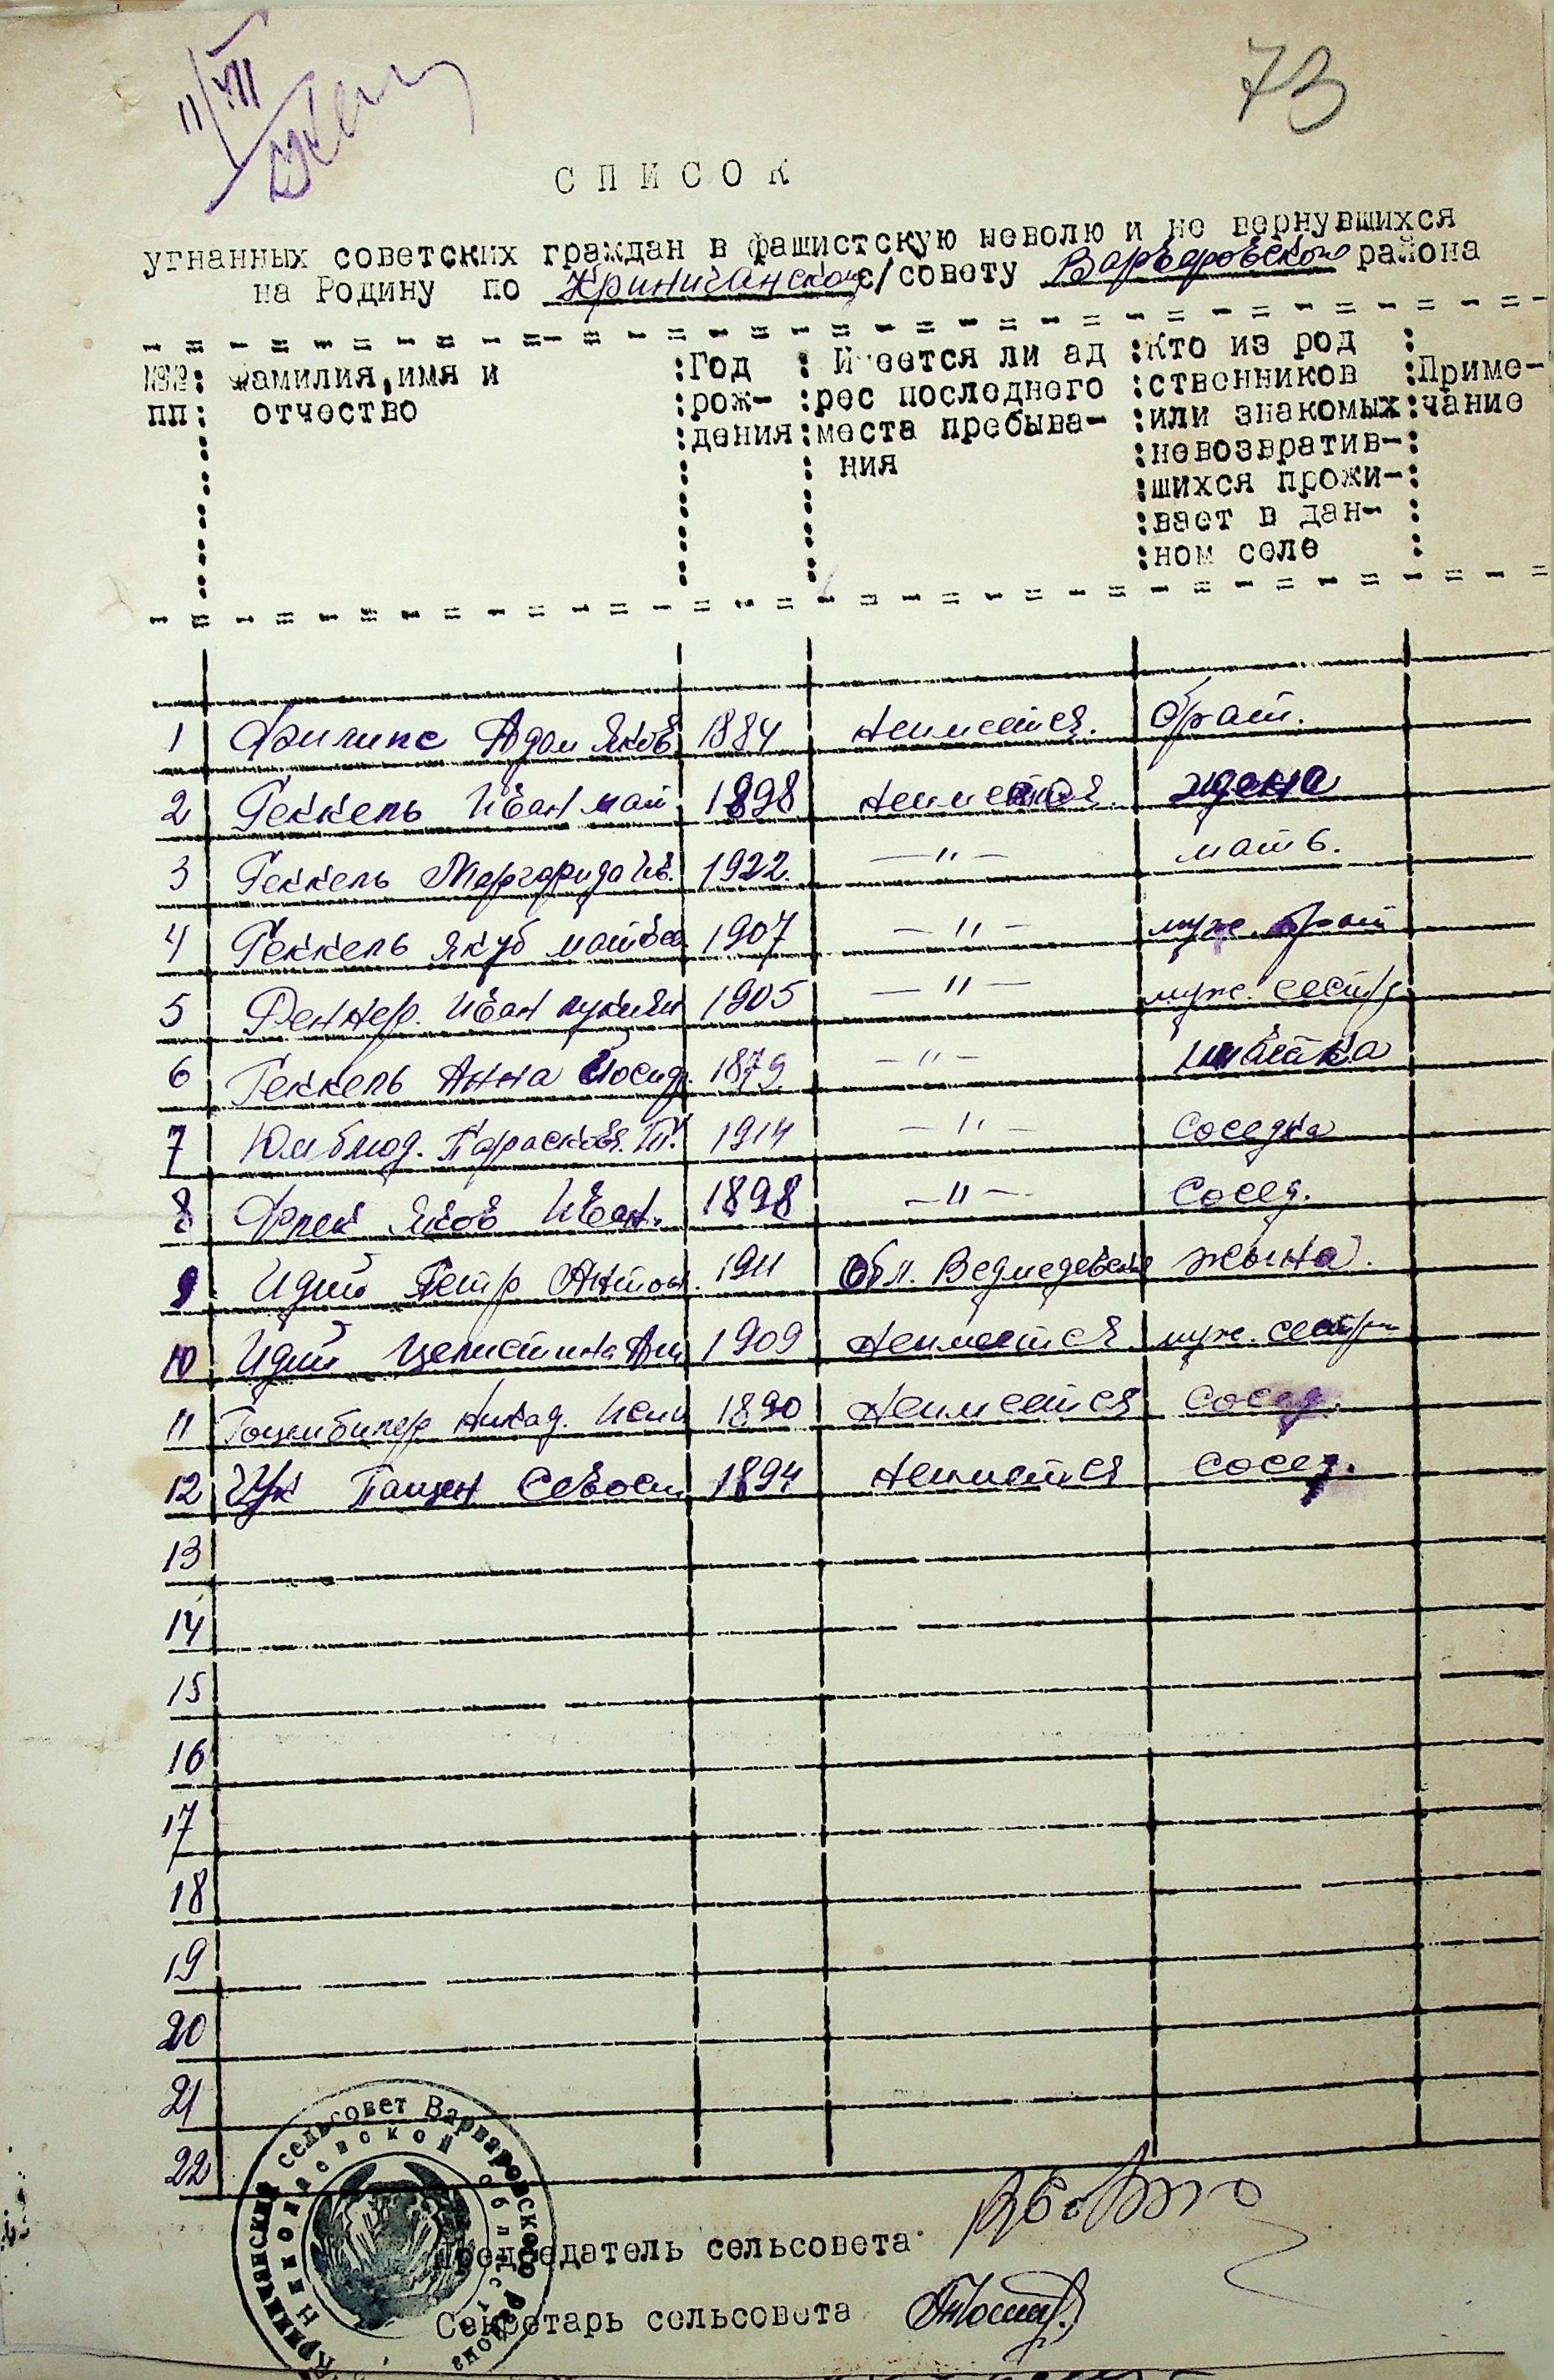 11/VII
73
СПИСОК
угнанных советских граждан в фашистскую неволю и не вернувшихся
на Родину по Криничанском с/совету Варваровском района
№№ пп : Фамилия, имя и отчество : Год рождения : Имеется ли ад рес последнего места пребыва- ния : Кто из род ственников или знакомых невозвратив- шихся прожи- вает в дан- ном селе : Приме- чание
1 Филипс Адам Яков 1884 неимеится. брат.
2 Геккель Иван мат 1898 неимеится. жена
3 Геккель Маргарида Ив. 1922. —"— мать.
4 Геккель Якуб матвеа 1907 —"— муж. брат
5 Реннер. Иван 1905 —"— муж. сестр.
6 Геккель Анна Иосиф. 1879 —"—
7 Юмблюд. Парасковя. 1914 —"— соседка
8 Фрек Яков Иван. 1898 —"— сосед.
9 Идт Петр Антон. 1911 Обл. жына.
10 Идт Целистина Ан 1909 неимеится муж. сестры
11 1890 неимеится сосед.
12 Севост 1894 неимеится сосед.
13
14
15
16
17
18
19
20
21
22
Криничанский сельсовет Варваровского района
Николаевской области
Председатель сельсовета
Секретарь сельсовета